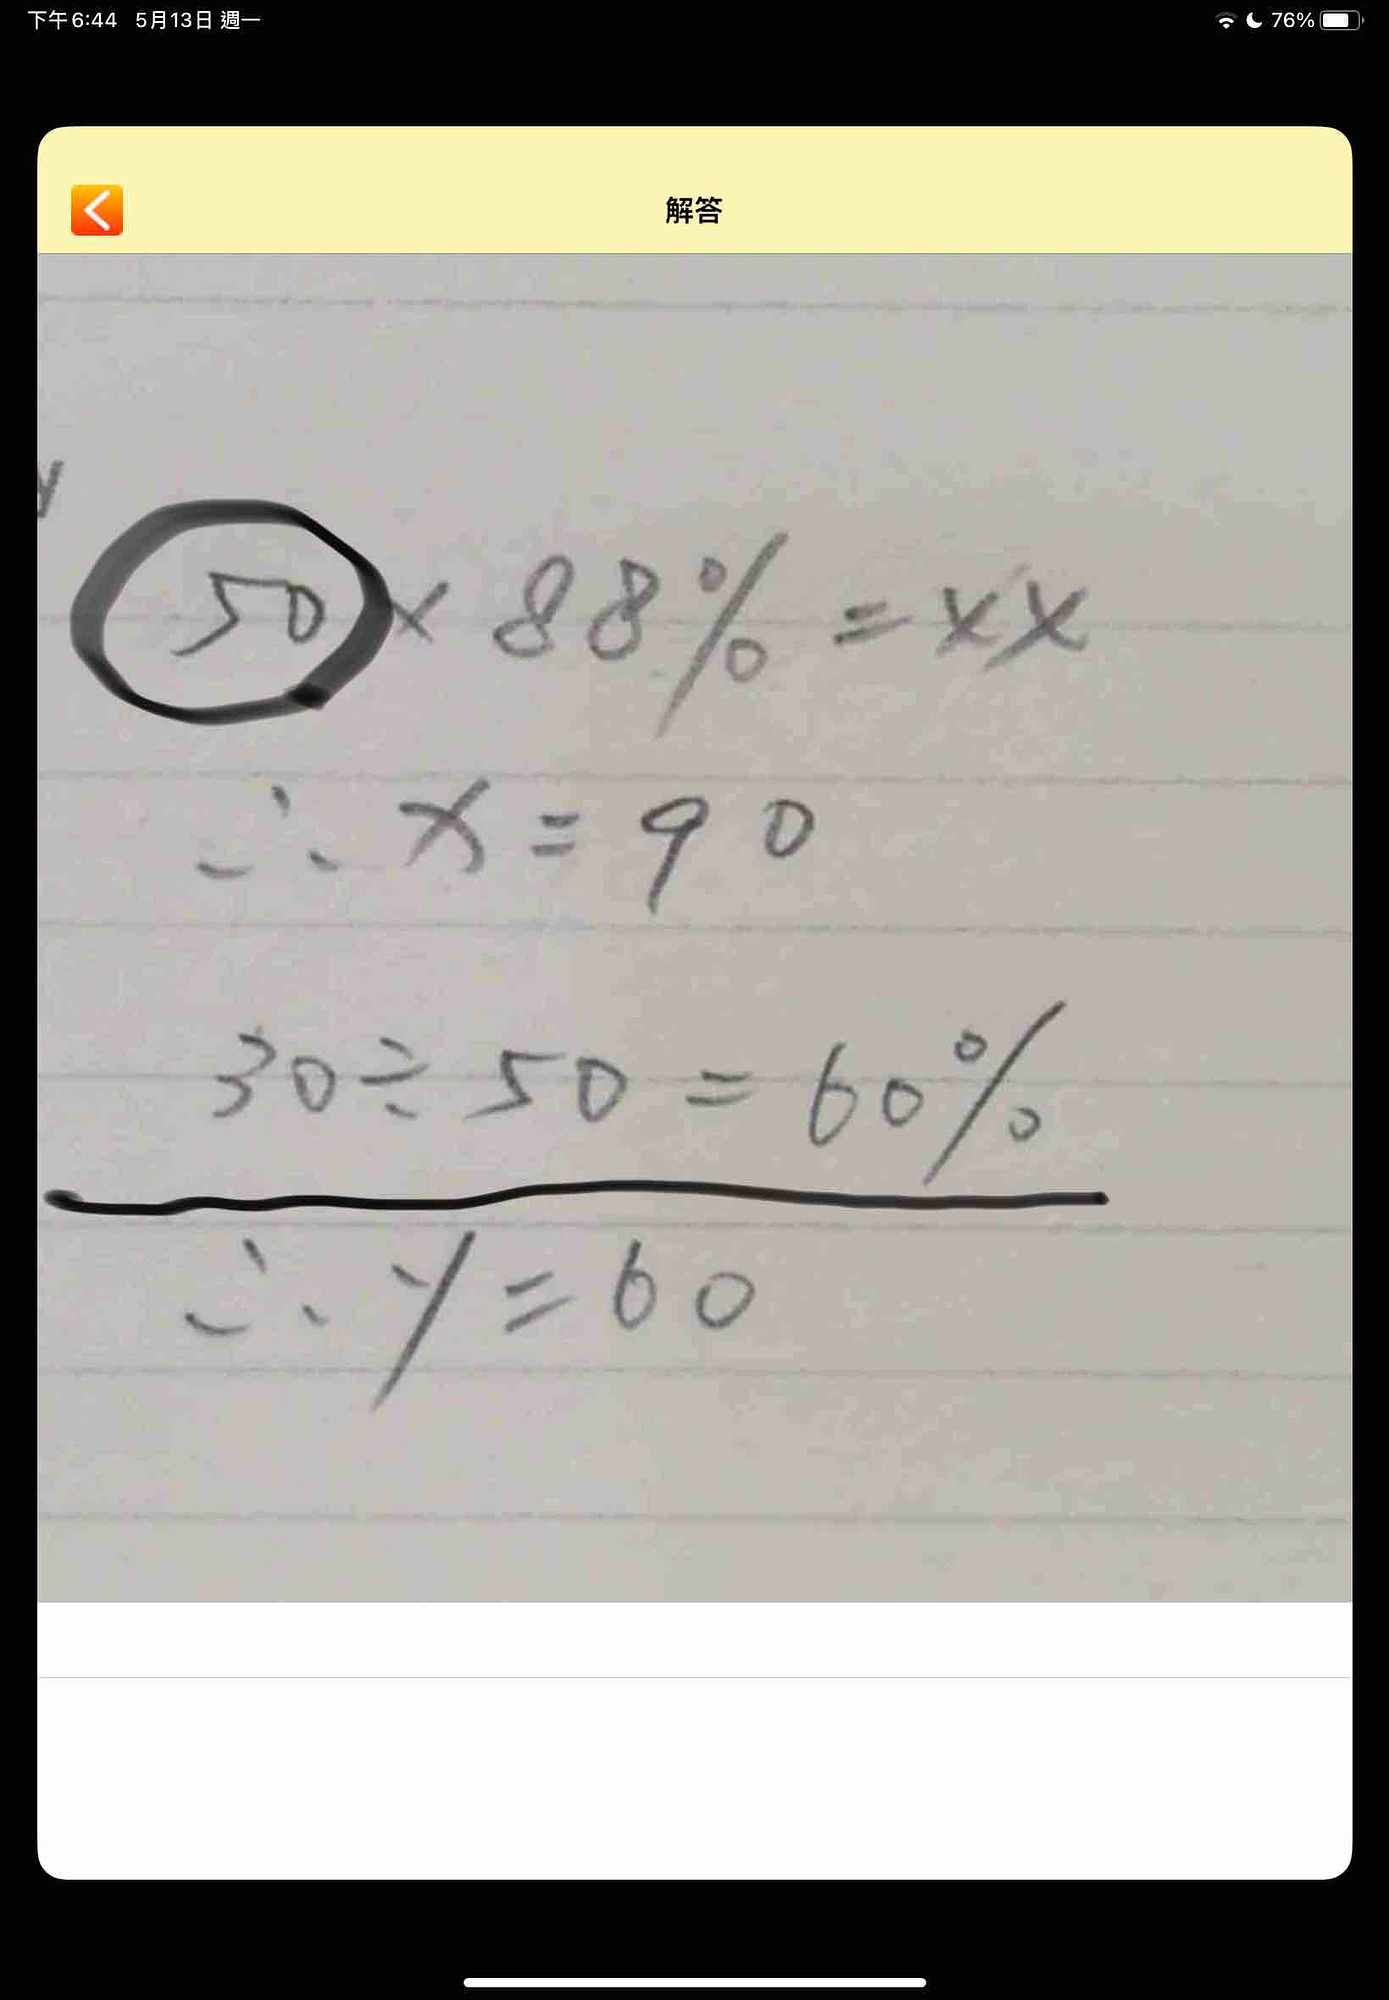 下午6:44 5月13日 週一
76%
解答
y
50 × 88% = xx
∴ x = 90
30 ÷ 50 = 60%
∴ y = 60